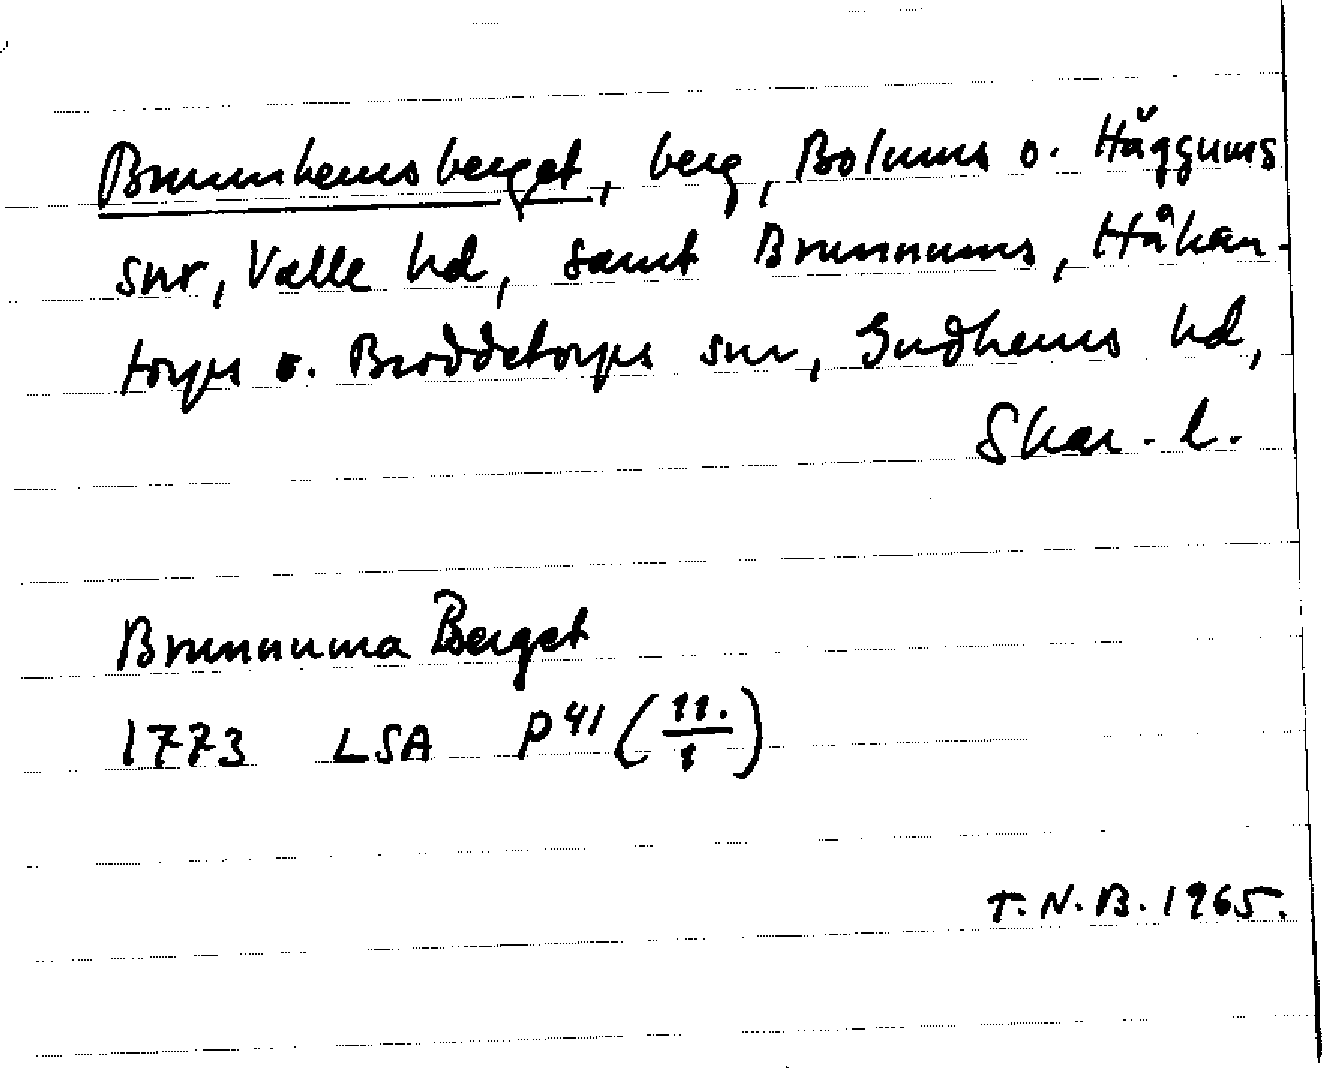 Brunnhemsberget, berg, Bolums o. Häggums
snr, Valle hd, samt Brunnums, Håkan-
torps o. Broddetorps snr, Gudhems hd,
Skar. l.
Brunnuma Berget
1773 LSA P 41 (11./1)
T.N.B. 1965.